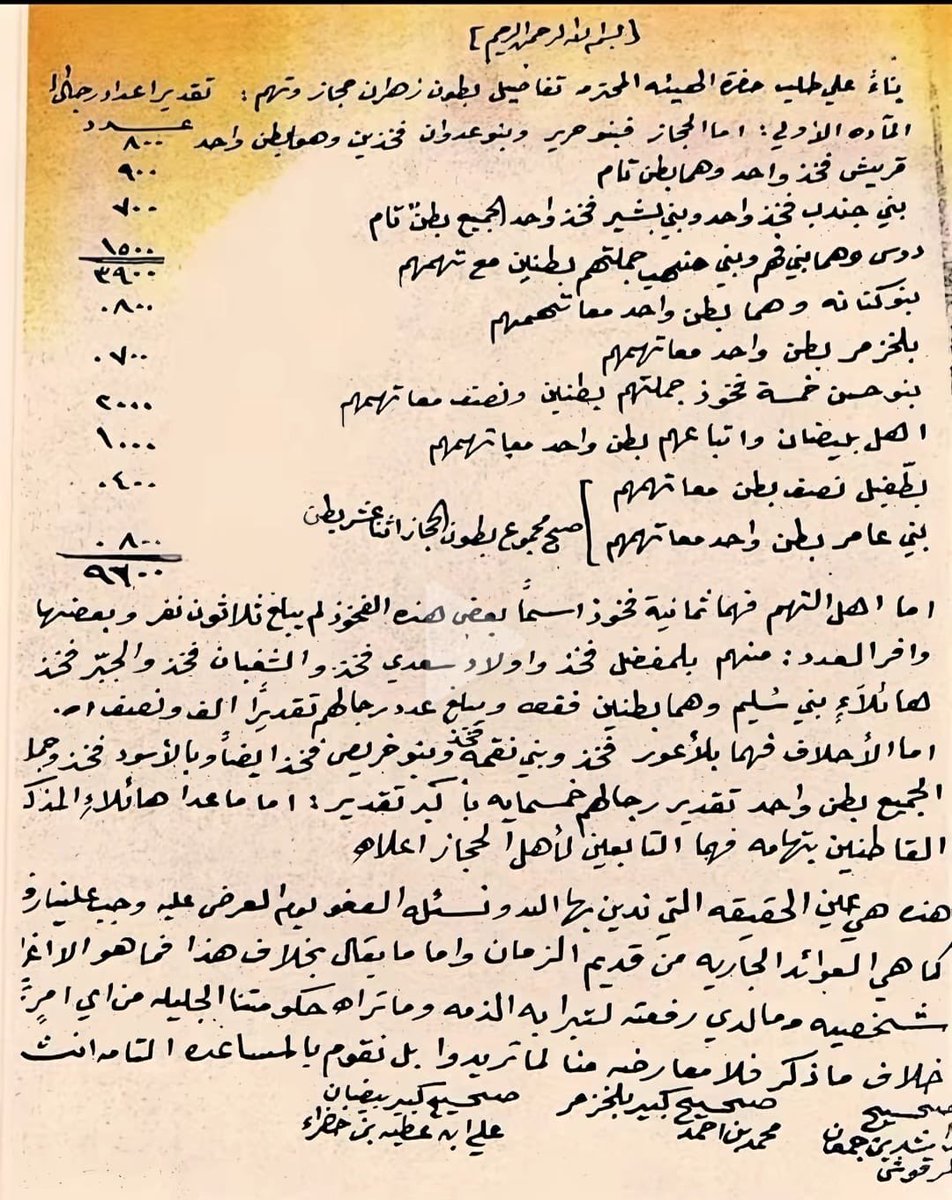 [بسم الله الرحمن الرحيم]
بناءً علي طلب حضرة الهيئه المحترمه تفاصيل بطون زهران حجاز وتهم : تقدير اعداد رجالها
عدد
المآده الأولي : اما الحجاز فبنو حرير وبنو عدوان فخذين وهما بطن واحد ٨٠٠
قريش فخذ واحد وهما بطن تام ٩٠٠
بني جندب فخذ واحد وبني بشير فخذ واحد الجميع بطنٌ تام ٧٠٠
دوس وهما بني فهم وبني منهب جملتهم بطنين مع تهمهم ١٥٠٠
٣٩٠٠
بنو كنانه وهما بطن واحد معا تهمهم ٠٨٠٠
بلخزمر بطن واحد معا تهمهم ٠٧٠٠
بنو حسن خمسة فخوذ جملتهم بطنين ونصف معا تهمهم ٢٠٠٠
اهل بليضان واتباعهم بطن واحد معا تهمهم ١٠٠٠
بطّفيل نصف بطن معا تهمهم ٠٤٠٠
بني عامر بطن واحد معا تهمهم ] صح مجموع بطون الحجاز اثنا عشر بطن ٠٨٠٠
٩٦٠٠
اما اهل التهم فهما ثمانية فخوذ اسماً بعض هذه الفخوذ لم يبلغ ثلاثون نفر وبعضها
وافر العدد : منهم بلمفضل فخذ واولاد سعدي فخذ والشغبان فخذ والجبّر فخذ
هائلآءِ بني سُليم وهما بطنين فقط ويبلغ عدد رجالهم تقديرًا الف ونصف اه.
اما الأحلاف فهما بلأعور فخذ وبني نقمة فخذ وبنو خريص فخذ ايضاً وبالأسود فخذ وجملة
الجميع بطن واحد تقدير رجالهم خمسمايه بأكبر تقدير : اما ماعدا هائلاءِ المذك
القاطنين بتهامه فهما التابعين لأهل الحجاز اعلاه
هذه هي علين الحقيقه التي ندين بها الله ونسئله العفو يوم العرض عليه وجب علينا رف
كما هي العوائد الجاريه من قديم الزمان واما ما يقال بخلاف هذا فما هو الا اغرا
شخصيه ومالدي رفعته لتبرا به الذمه وماتراه حكومتنا الجليله من اي امرٍ
خلاف ماذكر فلا معارضه منا لما تريدوا بل نقوم بالمساعده التامه انشا
صحيح كبير بيضان
علي ابن عطيه بن خضراء
صحيح كبير بلخزمر
محمد بن احمد
صحيح
راشد بن جمعان
الرقوش